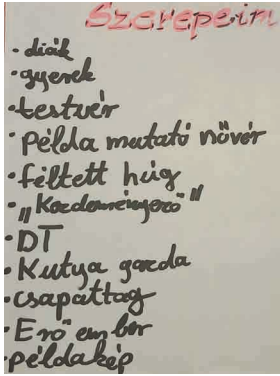 Szerepeim
• diák
• gyerek
• testvér
• Példa mutató nővér
• féltett húg
• „Kezdeményező"
• DT
• Kutya gazda
• csapattag
• Erő ember
• példakép